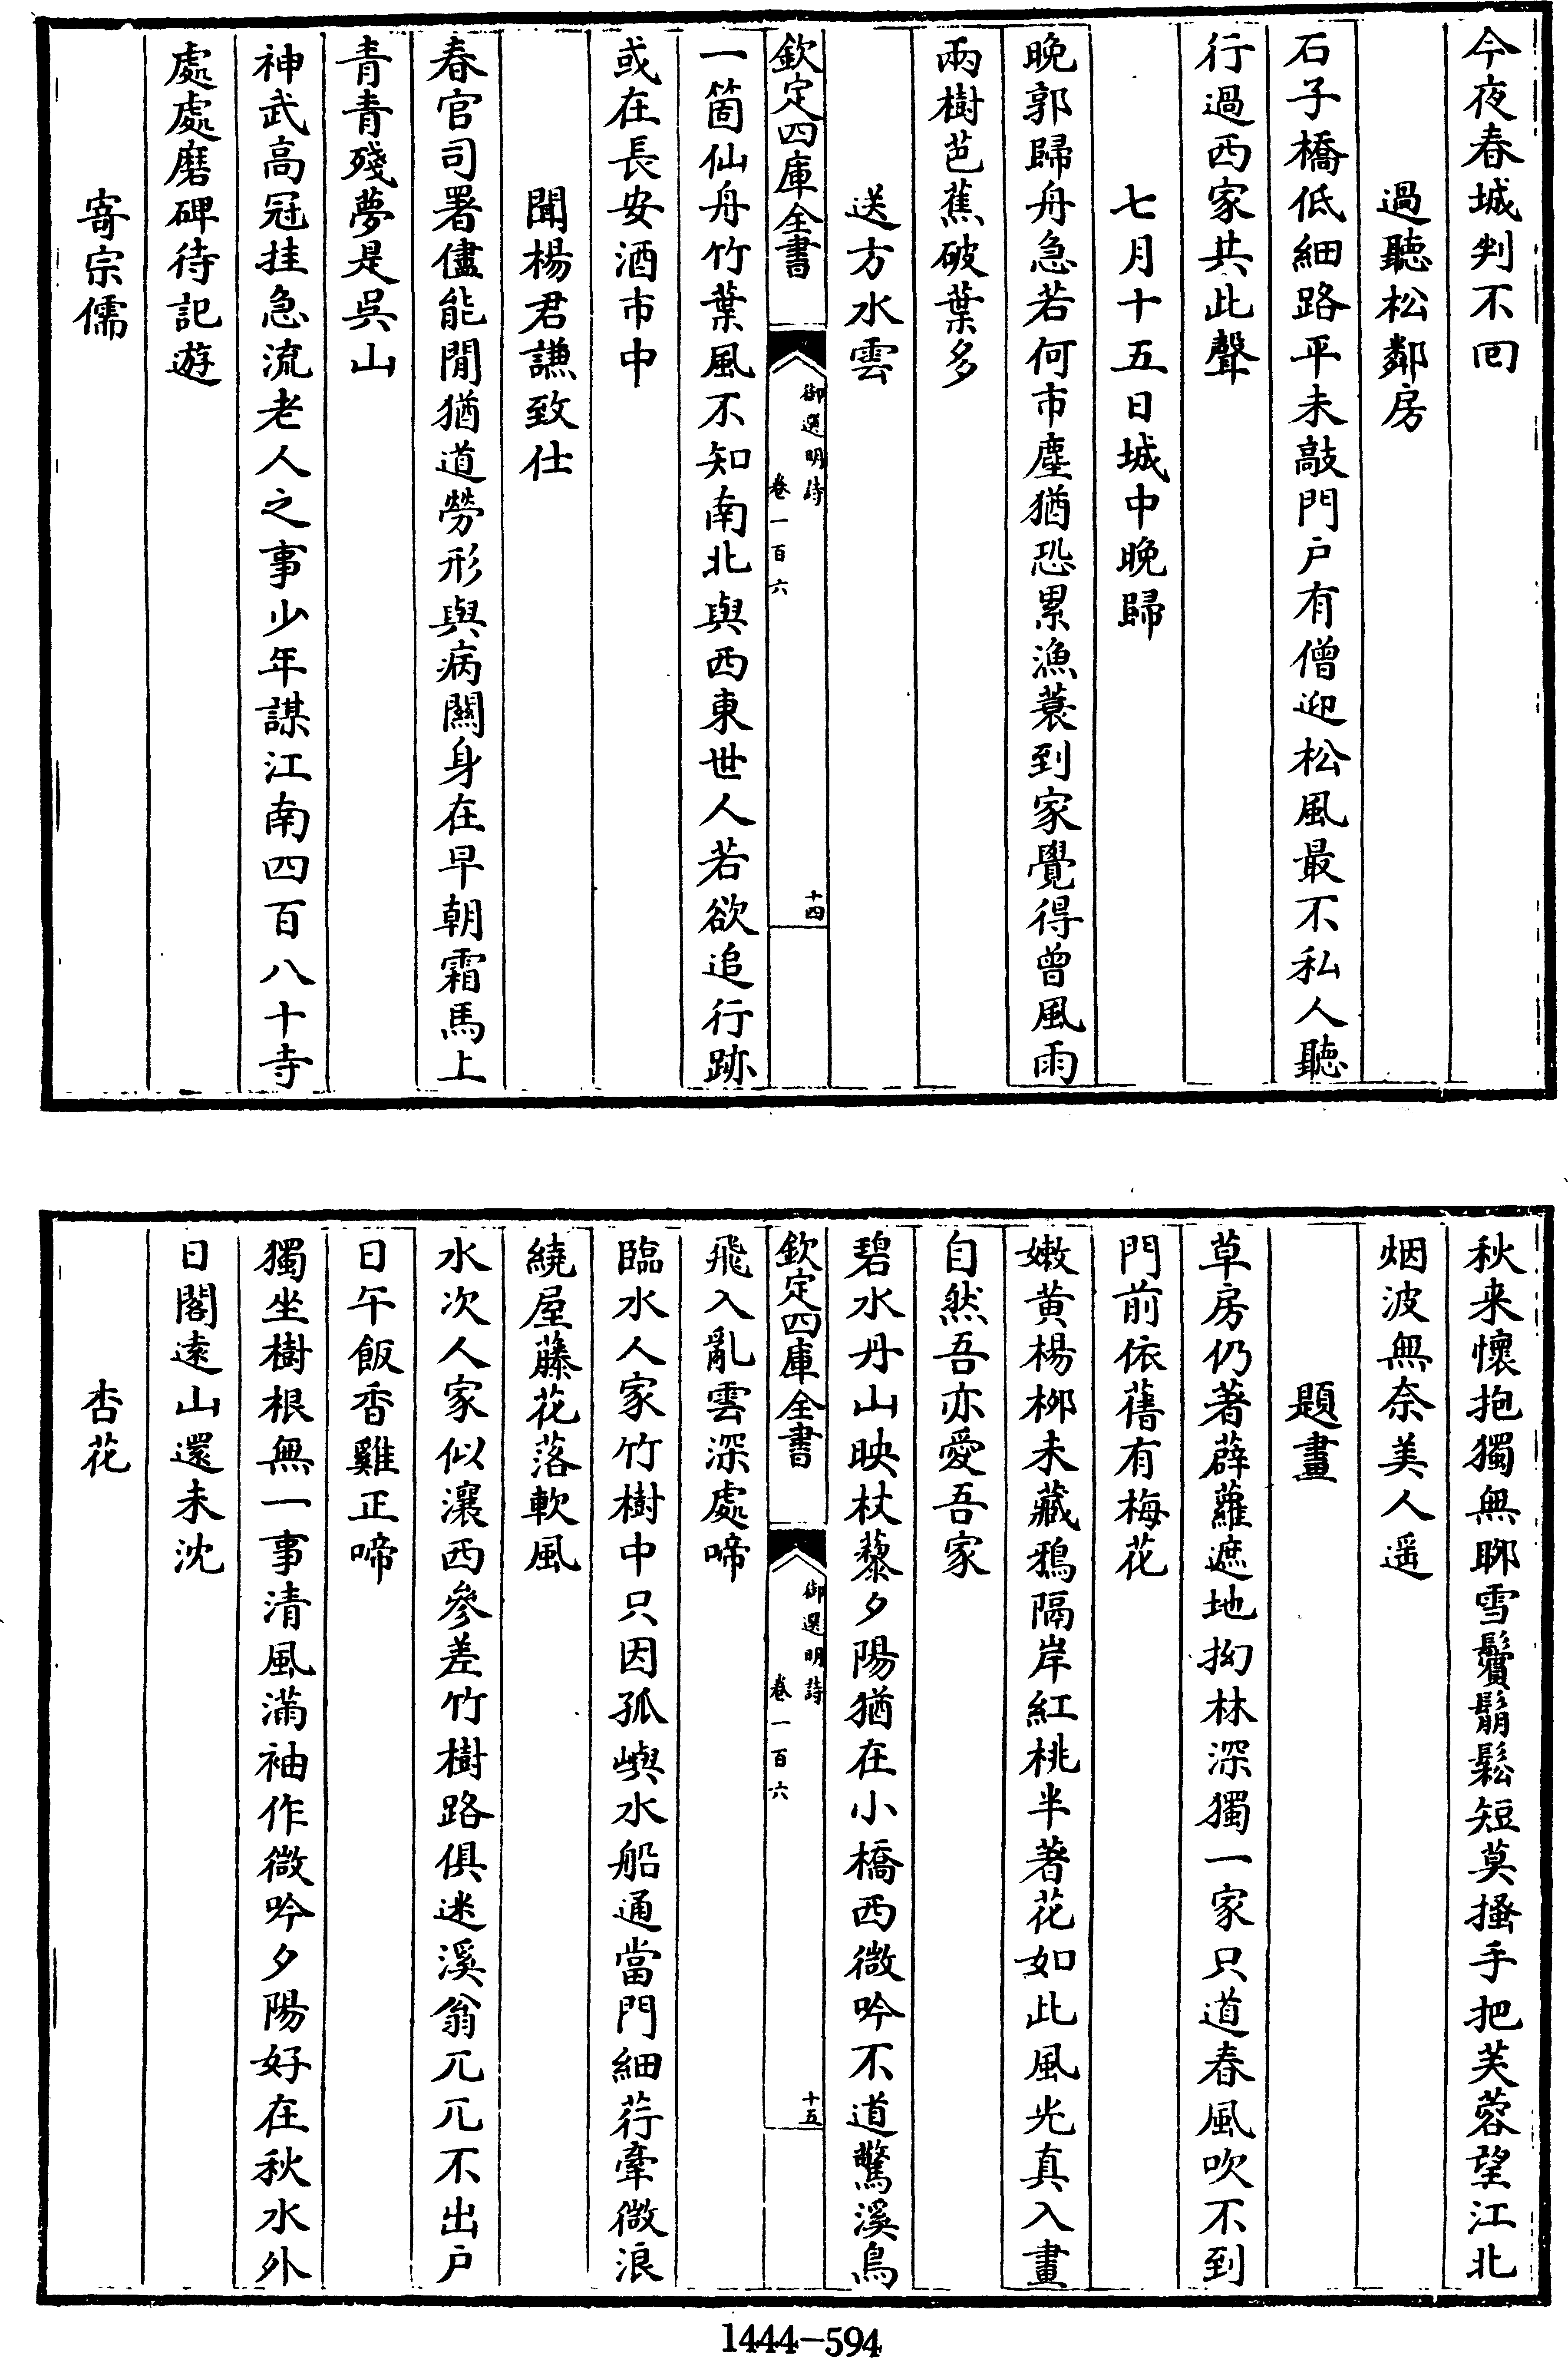 今夜春城判不回
過聽松鄰房
石子橋低細路平未敲門户有僧迎松風最不私人聽
行過西家共此聲
七月十五日城中晚歸
晚郭歸舟急若何市塵猶恐累漁蓑到家覺得曾風雨
兩樹芭蕉破葉多
送方水雲
欽定四庫全書
御選明詩
卷一百六
十四
一箇仙舟竹葉風不知南北與西東世人若欲追行跡
或在長安酒市中
聞楊君謙致仕
春官司署儘能閒猶道勞形與病關身在早朝霜馬上
青青殘夢是吳山
神武高冠挂急流老人之事少年謀江南四百八十寺
處處磨碑待記遊
寄宗儒
秋来懷抱獨無聊雪鬢鬅鬆短莫搔手把芙蓉望江北
烟波無奈美人遥
題畫
草房仍著薜蘿遮地拗林深獨一家只道春風吹不到
門前依舊有梅花
嫩黄楊栁未藏鴉隔岸紅桃半著花如此風光真入畫
自然吾亦愛吾家
碧水丹山映杖藜夕陽猶在小橋西微吟不道驚溪鳥
欽定四庫全書
御選明詩
卷一百六
十五
飛入亂雲深處啼
臨水人家竹樹中只因孤嶼水船通當門細荇牽微浪
繞屋藤花落軟風
水次人家似瀼西參差竹樹路俱迷溪翁兀兀不出户
日午飯香雞正啼
獨坐樹根無一事清風滿袖作微吟夕陽好在秋水外
日閣遠山還未沈
杏花
1444-594